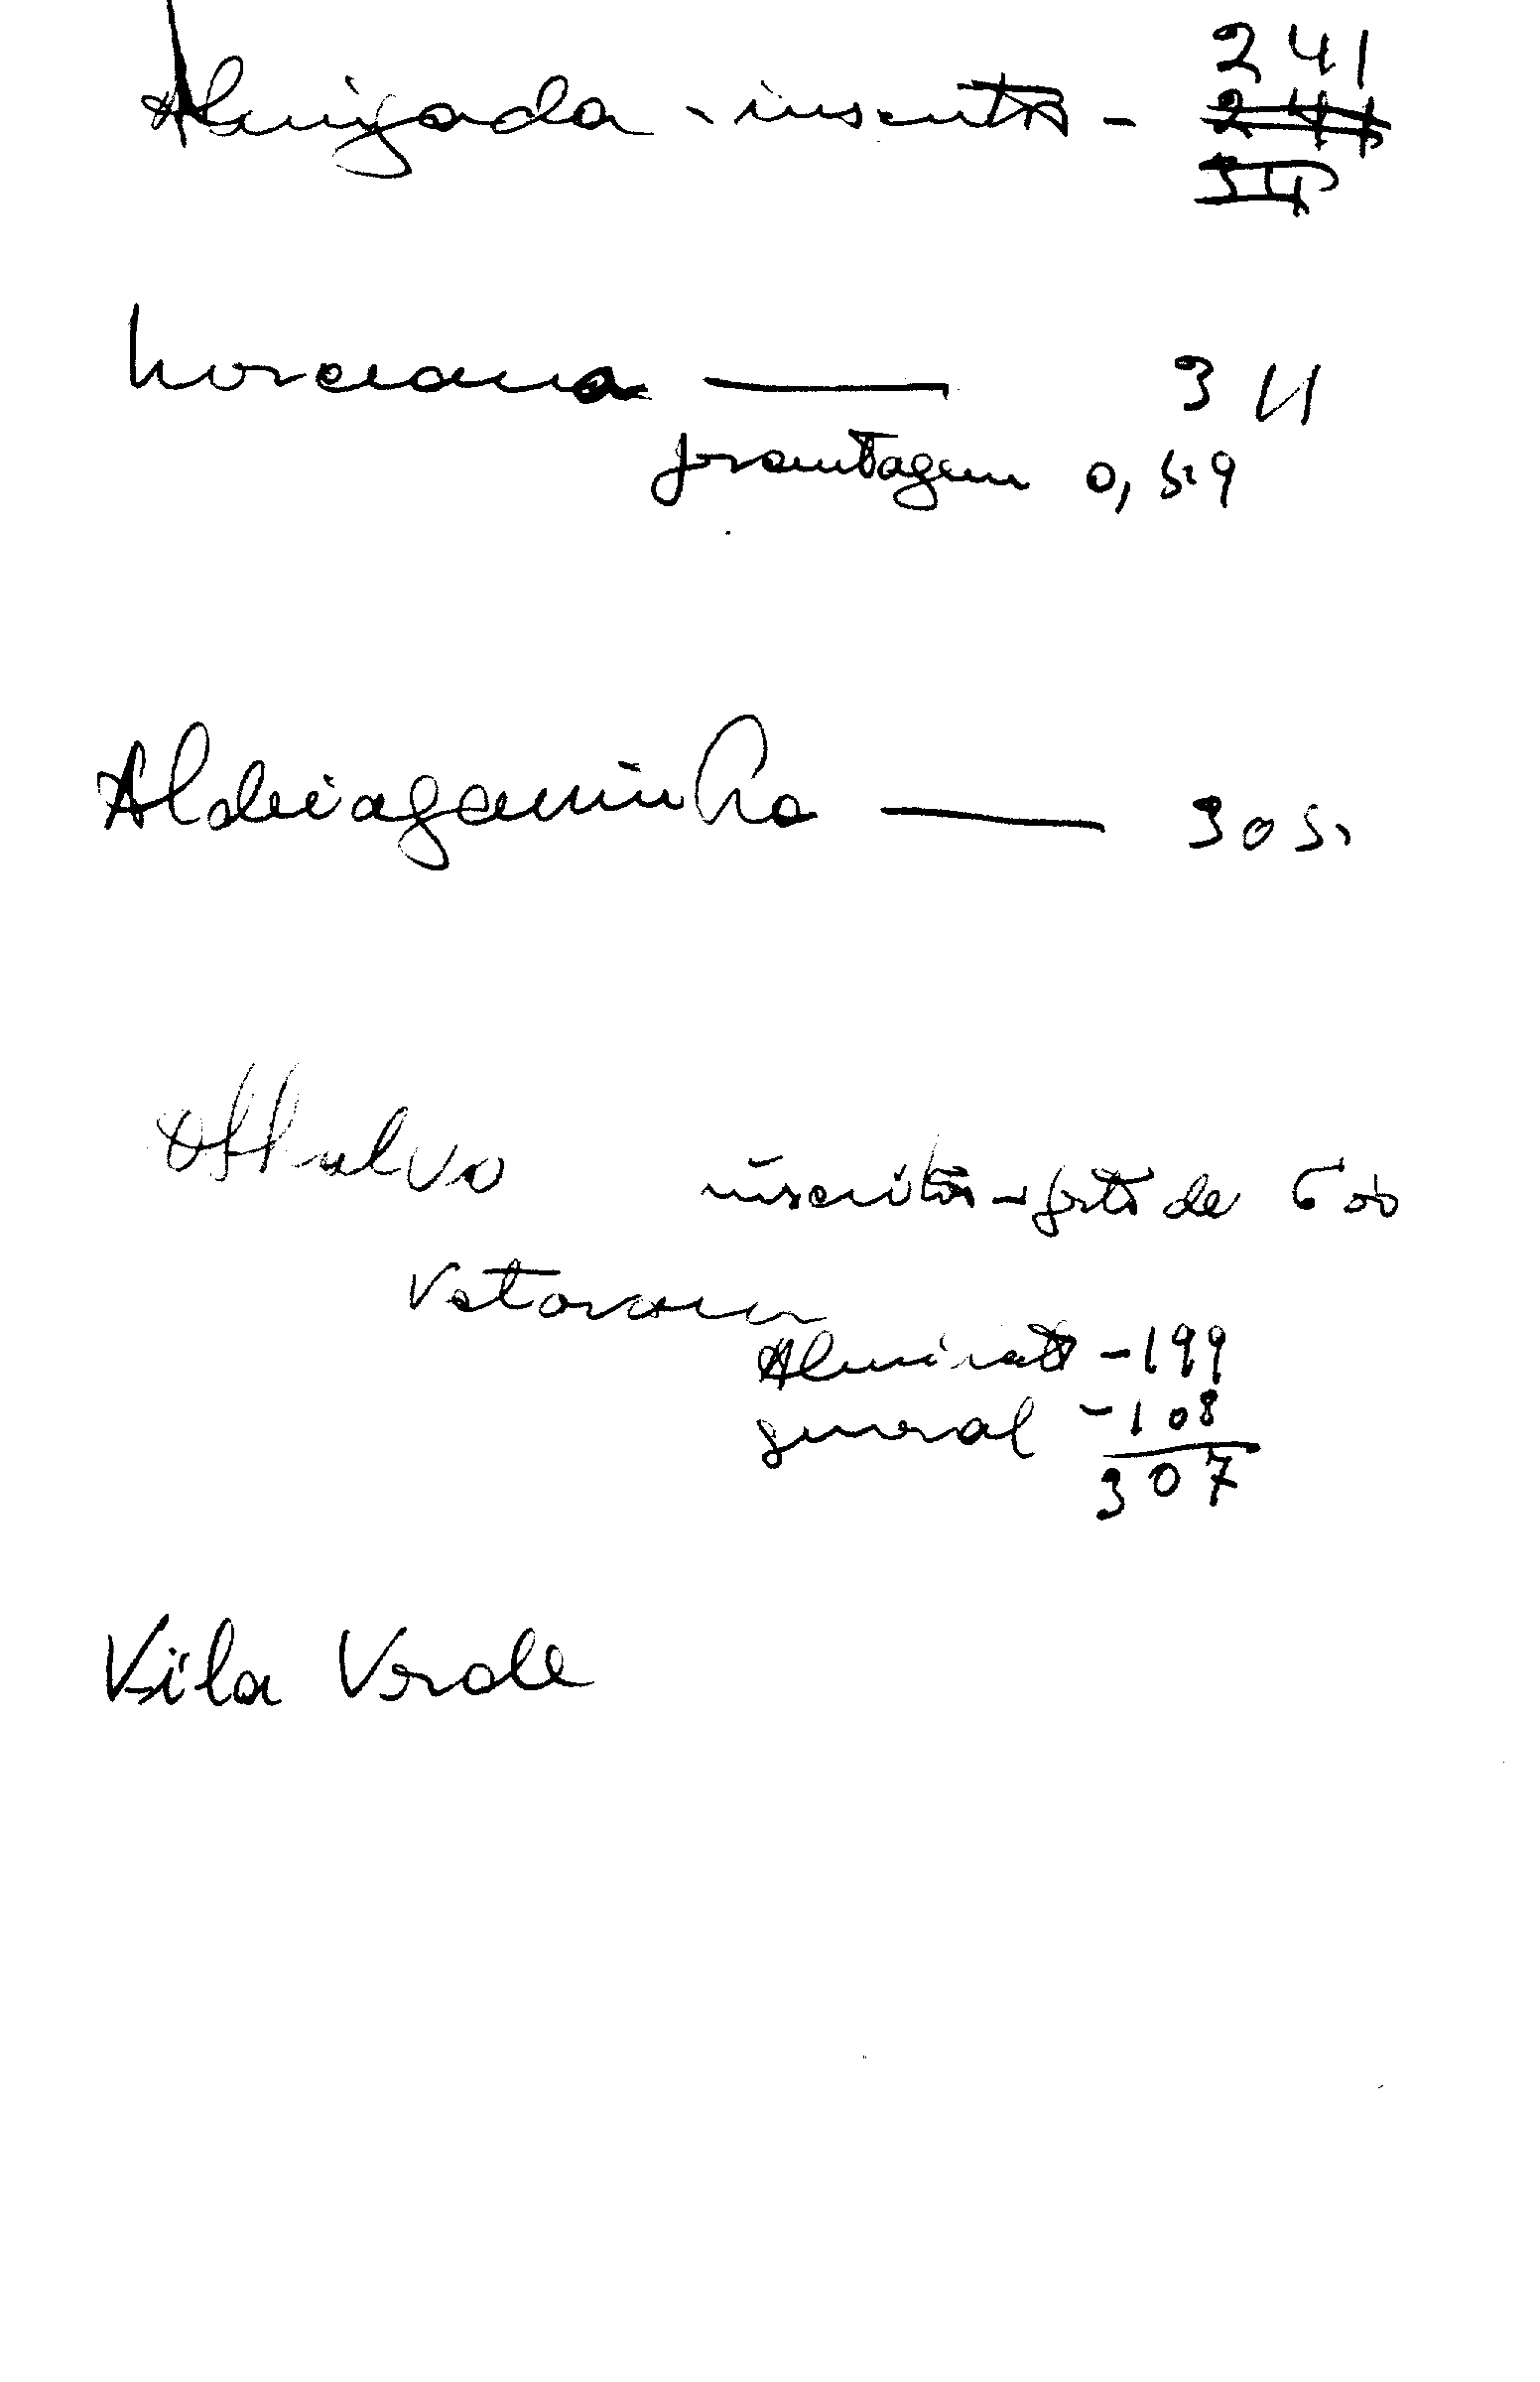 241
Abrigada - inscritos - 241
311
Merceana — 311
percentagem 0,59
Aldeiagavinha — 305
Olhalvo inscritos - perto de 600
Votaram
Almirante - 199
general - 108
307
Vila Verde